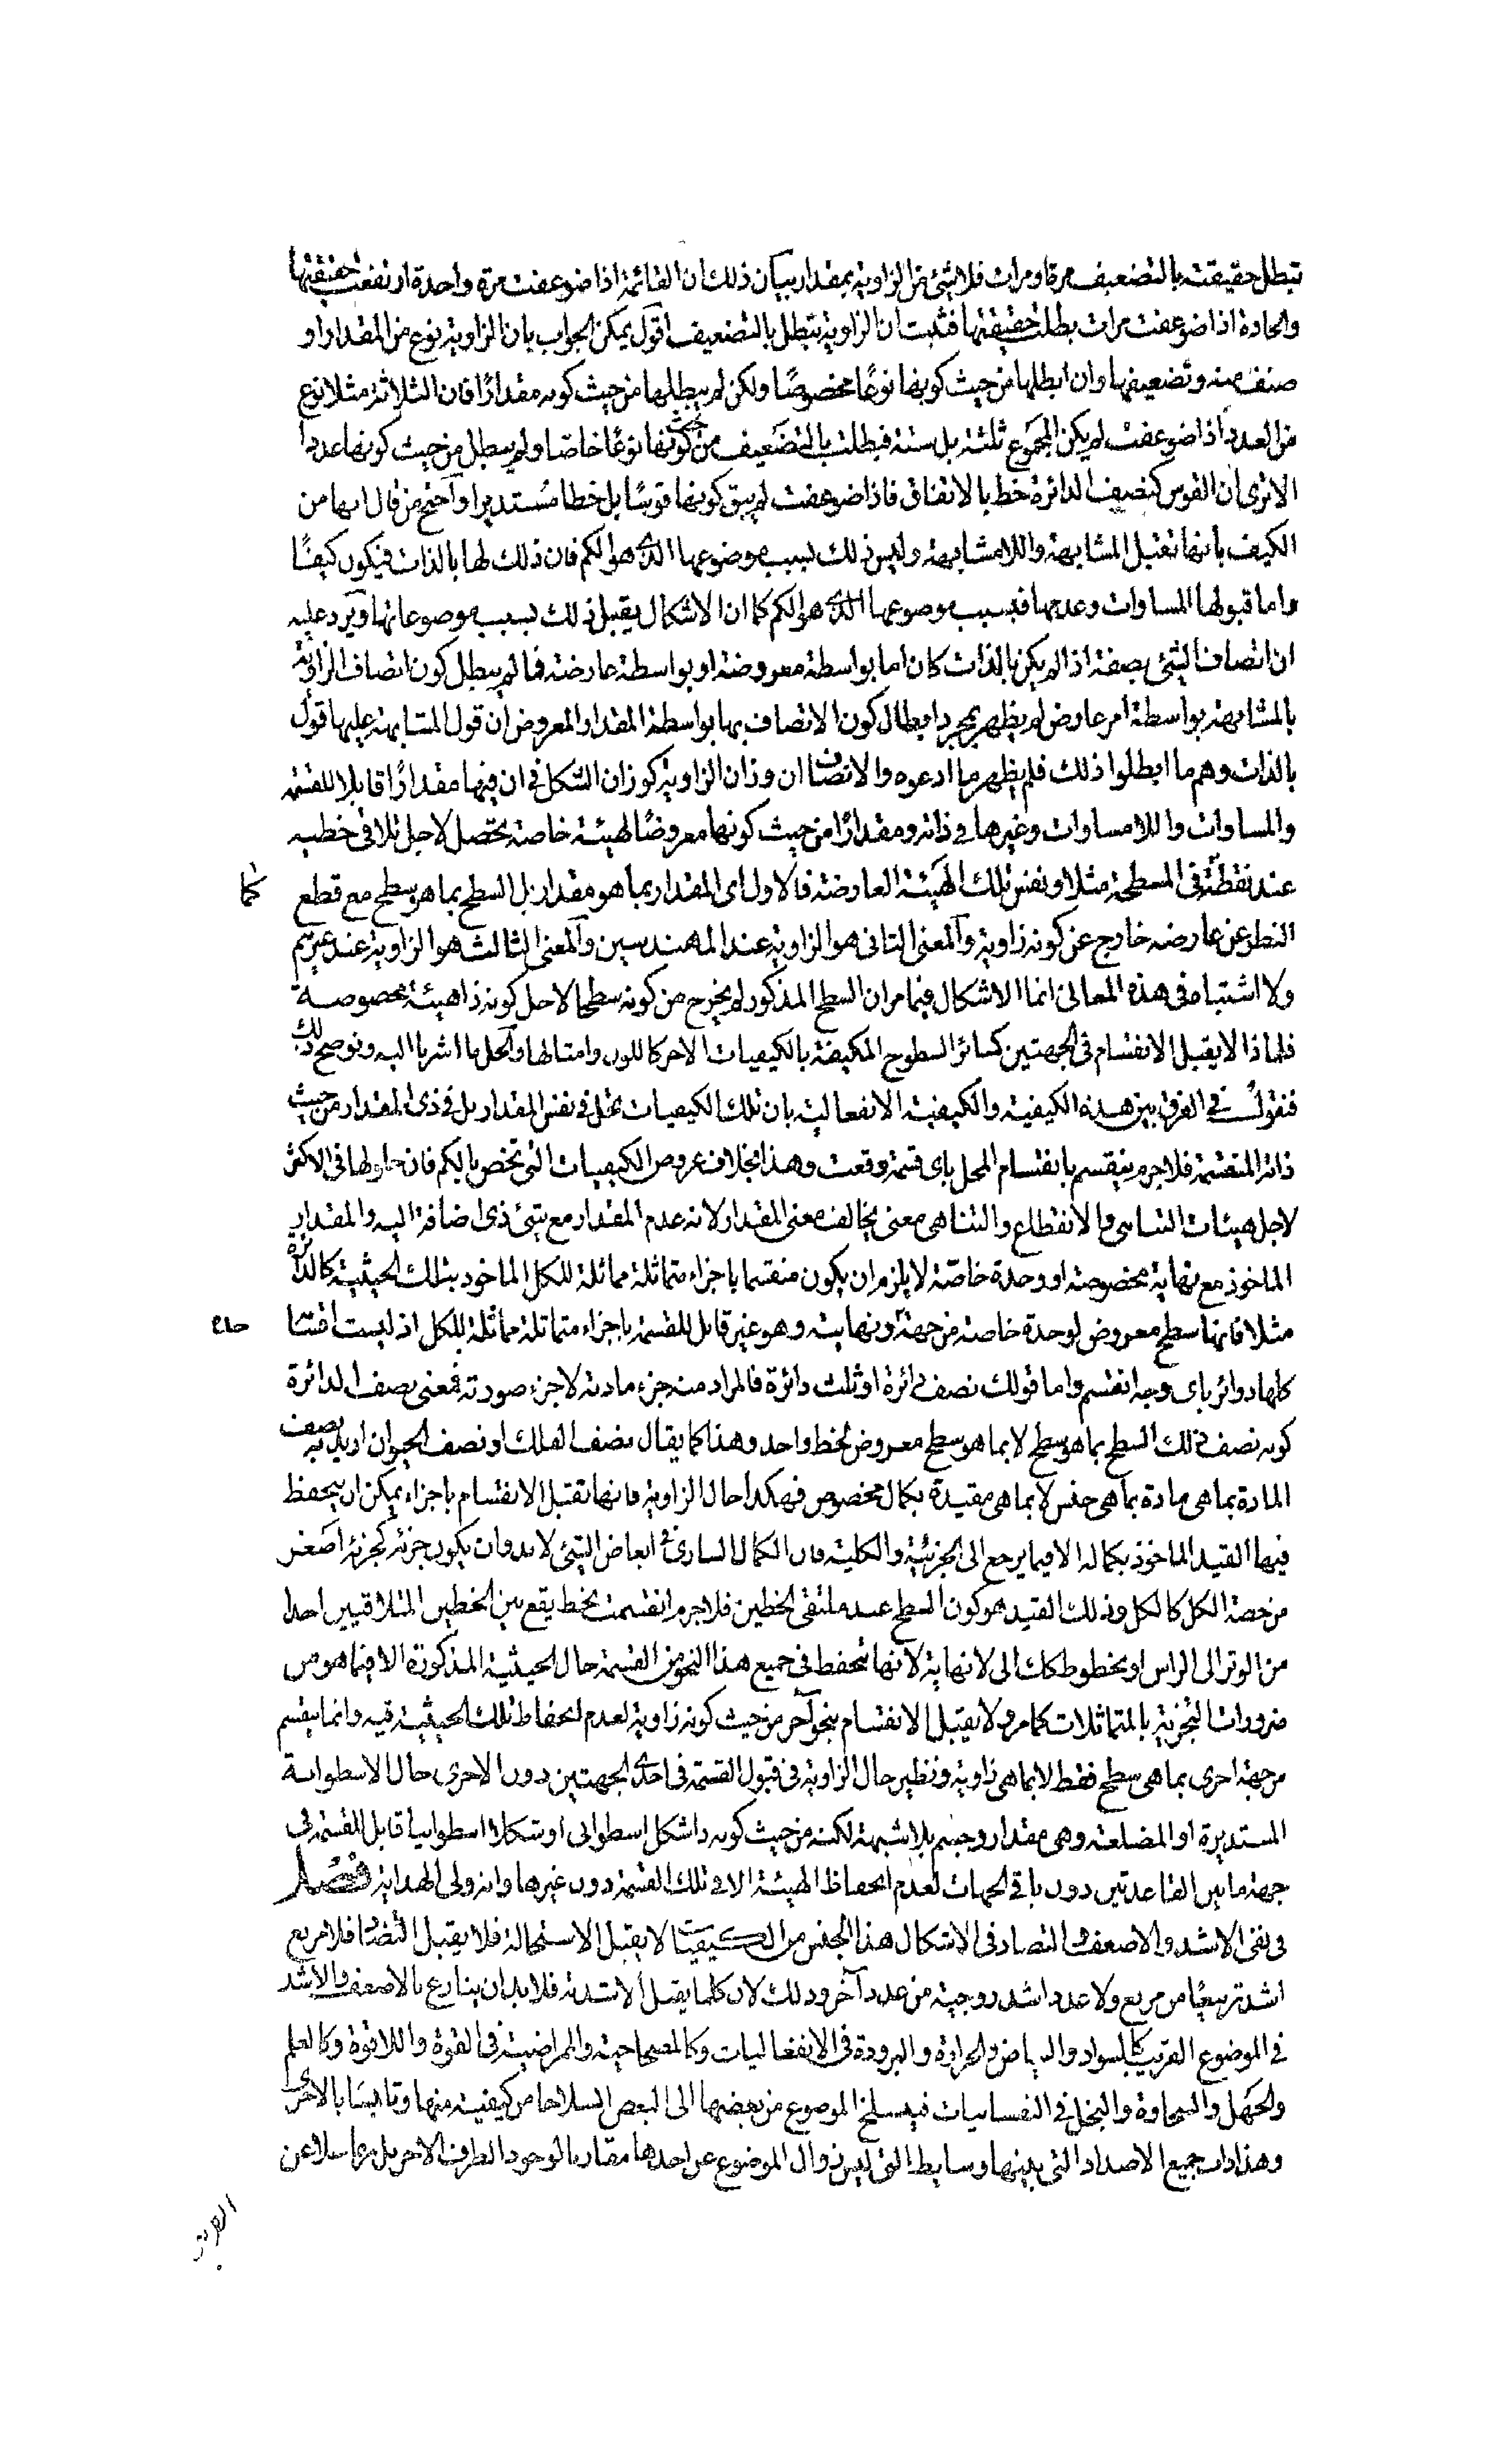 تبطل حقيقته بالتضعيف مرة او مرات فلا شئ من الزاوية بمقدار بيان ذلك ان القائمة اذا ضوعفت مرة واحدة ارتفعت حقيقتها
والحادة اذا ضوعفت مرات بطلت حقيقتها فثبت ان الزاوية تبطل بالتضعيف اقول يمكن الجواب بان الزاوية نوع من المقدار او
صنف منه وتضعيفها وان ابطلها من حيث كونها نوعًا مخصوصًا ولكن لم يبطلها من حيث كونه مقدارًا فان الثلاثة مثلا نوع
من العدد اذا ضوعفت لم يكن المجموع ثلثة بل ستة فبطلت بالتضعيف من حيث كونها نوعًا خاصا ولم يبطل من حيث كونها عددا
الا ترى ان القوس كنصف الدائرة خط بالاتفاق فاذا ضوعفت لم يبق كونها قوسًا بل خطا مستديرا واحتج من قال انها من
الكيف بانها تقبل المشابهة واللامشابهة وليس ذلك بسبب موضوعها الذى هو الكم فان ذلك لها بالذات فيكون كيفًا
واما قبولها المساوات وعدمها فبسبب موضوعها الذى هو الكم كما ان الاشكال يقبل ذلك بسبب موضوعاتها ويرد عليه
ان اتصاف الشئ بصفة اذا لم يكن بالذات كان اما بواسطة معروضة او بواسطة عارضة فما لم يبطل كون اتصاف الزاوية
بالمشابهة بواسطة امر عارض لم يظهر بمجرد ابطال كون الاتصاف بها بواسطة المقدار المعروض ان قول المشابهة عليها قول
بالذات وهم ما ابطلوا ذلك فلم يظهر ما ادعوه والانصاف ان وزان الزاوية كوزان الشكل فى ان فيها مقدارًا قابلا للقسمة
والمساوات واللامساوات وغيرها فى ذاته ومقدارًا من حيث كونها معروضًا لهيئة خاصة يحصل لاجل تلاقى خطيه
عند نقطة فى المسطحة مثلا ونفس تلك الهيئة العارضة فالاول اى المقدار بما هو مقدار بل السطح بما هو سطح مع قطع كما
النظر عن عارضه خارج عن كونه زاوية والمعنى الثانى هو الزاوية عند المهندسين والمعنى الثالث هو الزاوية عند غيرهم
ولا اشتباه فى هذه المعانى انما الاشكال فيما مر ان السطح المذكور لم يخرج من كونه سطحا لاجل كونه ذا هيئة مخصوصة
فلماذا لا يقبل الانقسام فى الجهتين كسائر السطوح المكيفة بالكيفيات الاخر كاللون وامثالها والحل ما اشرنا اليه ونوضح ذلك
فنقول فى الفرق بين هذه الكيفية والكيفية الانفعالية بان تلك الكيفيات تحل فى نفس المقدار بل فى ذى المقدار من حيث
ذاته المنقسمة فلا جرم ينقسم بانقسام المحل باى قسمة وقعت وهذا بخلاف عروض الكيفيات التى تختص بالكم فان حلولها فى الاكثر
لاجل هيئات التناهى والانقطاع والتناهى معنى يخالف معنى المقدار لانه عدم المقدار مع شئ ذى اضافة اليه والمقدار
الماخوذ مع نهاية مخصوصة او وحدة خاصة لا يلزم ان يكون منقسما باجزاء متماثلة مماثلة للكل الماخوذ بتلك الحيثية كالدائرة
مثلا فانها سطح معروض لوحدة خاصة من جهة ونهاية وهو غير قابل للقسمة باجزاء متماثلة مماثلة للكل اذ ليست اقسا
كلها دوائر باى وجه انقسم واما قولك نصف دائرة او ثلث دائرة فالمراد منه جزء مادته لا جزء صورته فمعنى نصف الدائرة
كونه نصف ذلك السطح بما هو سطح لا بما هو سطح معروض لخط واحد وهذا كما يقال نصف الفلك او نصف الحيوان اريد به نصف
المادة بما هى مادة بما هى جنس لا بما هى مقيدة بكمال مخصوص فهكذا حال الزاوية فانها تقبل الانقسام باجزاء يمكن ان ينحفظ
فيها القيد الماخوذ بكماله الا فيما يرجع الى الجزئية والكلية فان الكمال السارى فى ابعاض الشئ لا بد وان يكون جزئه كجزئه اصغر
من حصة الكل كالكل وذلك القيد هو كون السطح عند ملتقى الخطين فلا جرم انقسمت بخط يقع بين الخطين المتلاقيين اخذا
من الوتر الى الراس او بخطوط كك الى لا نهاية لانها تنحفظ فى جميع هذا النحو من القسمة حال الحيثية المذكورة الا فيما هو من
ضرورات التجزية بالمتماثلات كما مر ولا يقبل الانقسام بنحو آخر من حيث كونه زاوية لعدم انحفاظ تلك الحيثية فيه وانما ينقسم
من جهة اخرى بما هى سطح فقط لا بما هى زاوية ونظير حال الزاوية فى قبول القسمة فى احدى الجهتين دون الاخرى حال الاسطوانة
المستديرة او المضلعة وهى مقدار وجسم بلا شبهة لكنه من حيث كونه ذا شكل اسطوانى او شكلا اسطوانيا قابل للقسمة فى
جهة ما بين القاعدتين دون باقى الجهات لعدم انحفاظ الهيئة الا فى تلك القسمة دون غيرها وانه ولى الهداية فصل
فى نفى الاشد والاضعف والتضاد فى الاشكال هذا الجنس من الكيفيات لا يقبل الاستحالة فلا يقبل التضاد فلا مربع
اشد تربيعًا من مربع ولا عدد اشد زوجية من عدد آخر وذلك لان كلما يقبل الاشتدد فلا بد ان يتنازع بالاضعف والاشد
فى الموضوع القريب كالسواد والبياض والحرارة والبرودة فى الانفعاليات وكالمصحاحية والممراضية فى القوة واللاقوة وكالعلم
والجهل والسخاوة والبخل فى النفسانيات فينسلخ الموضوع من بعضها الى البعض انسلاخا من كيفية منها وتلبسا بالاخرى
وهذا داب جميع الاضداد التى بينها وسايط التى ليس زوال الموضوع عن احدها مقارنا لوجود الطرف الاخر بل متراسلا عن